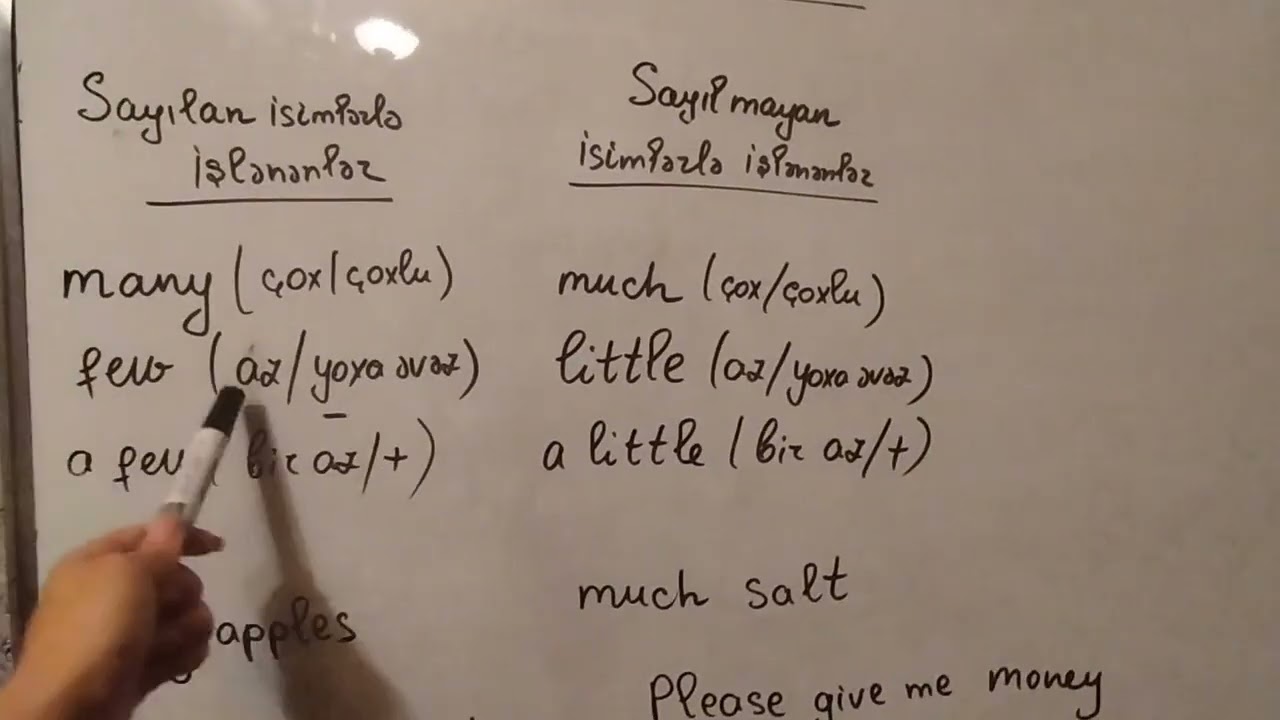 Sayılan isimlərlə
işlənənlər
many (çox/çoxlu)
few (az/yoxa əvəz)
a few (bir az/+)
apples
Sayılmayan
isimlərlə işlənənlər
much (çox/çoxlu)
little (az/yoxa əvəz)
a little (bir az/+)
much salt
Please give me money